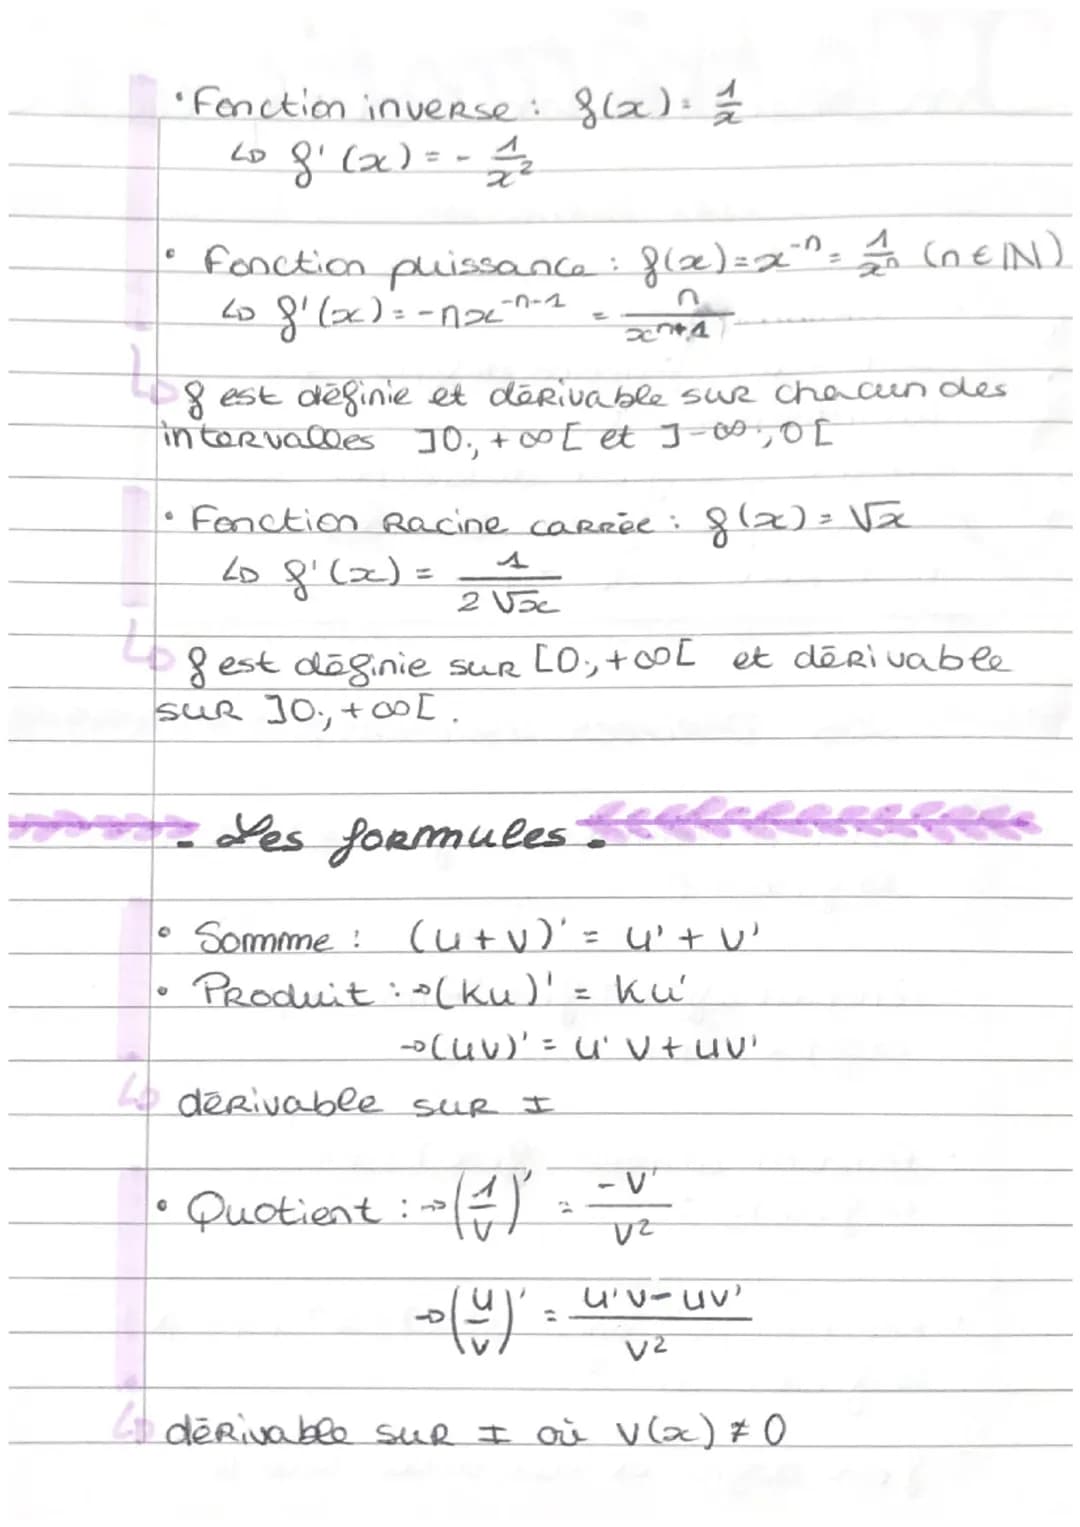 • Fonction inverse : f(x) = 1/x
↳ f'(x) = - 1/x²
• Fonction puissance : f(x) = x⁻ⁿ = 1/xⁿ (n ∈ ℕ)
↳ f'(x) = -nx⁻ⁿ⁻¹ = n/xⁿ⁺¹
↳ f est définie et dérivable sur chacun des
intervalles ]0; +∞[ et ]-∞; 0[
• Fonction Racine carrée : f(x) = √x
↳ f'(x) = 1/(2√x)
↳ f est définie sur [0; +∞[ et dérivable
sur ]0; +∞[.
- Les formules -
• Somme : (u+v)' = u' + v'
• Produit : → (ku)' = ku'
→ (uv)' = u'v + uv'
↳ dérivable sur I
• Quotient : → (1/v)' = -v'/v²
→ (u/v)' = (u'v - uv')/v²
↳ dérivable sur I où v(x) ≠ 0